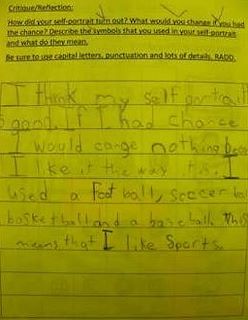 Critique/Reflection:
How did your self-portrait turn out? What would you change if you had
the chance? Describe the symbols that you used in your self-portrait
and what do they mean.
Be sure to use capital letters, punctuation and lots of details. RADD.
I think my self portrait
good. If I had chance
I would carge nothing
I like it the way I
used a foot ball, soccer
basketball and a baseball. This
means that I like Sports.